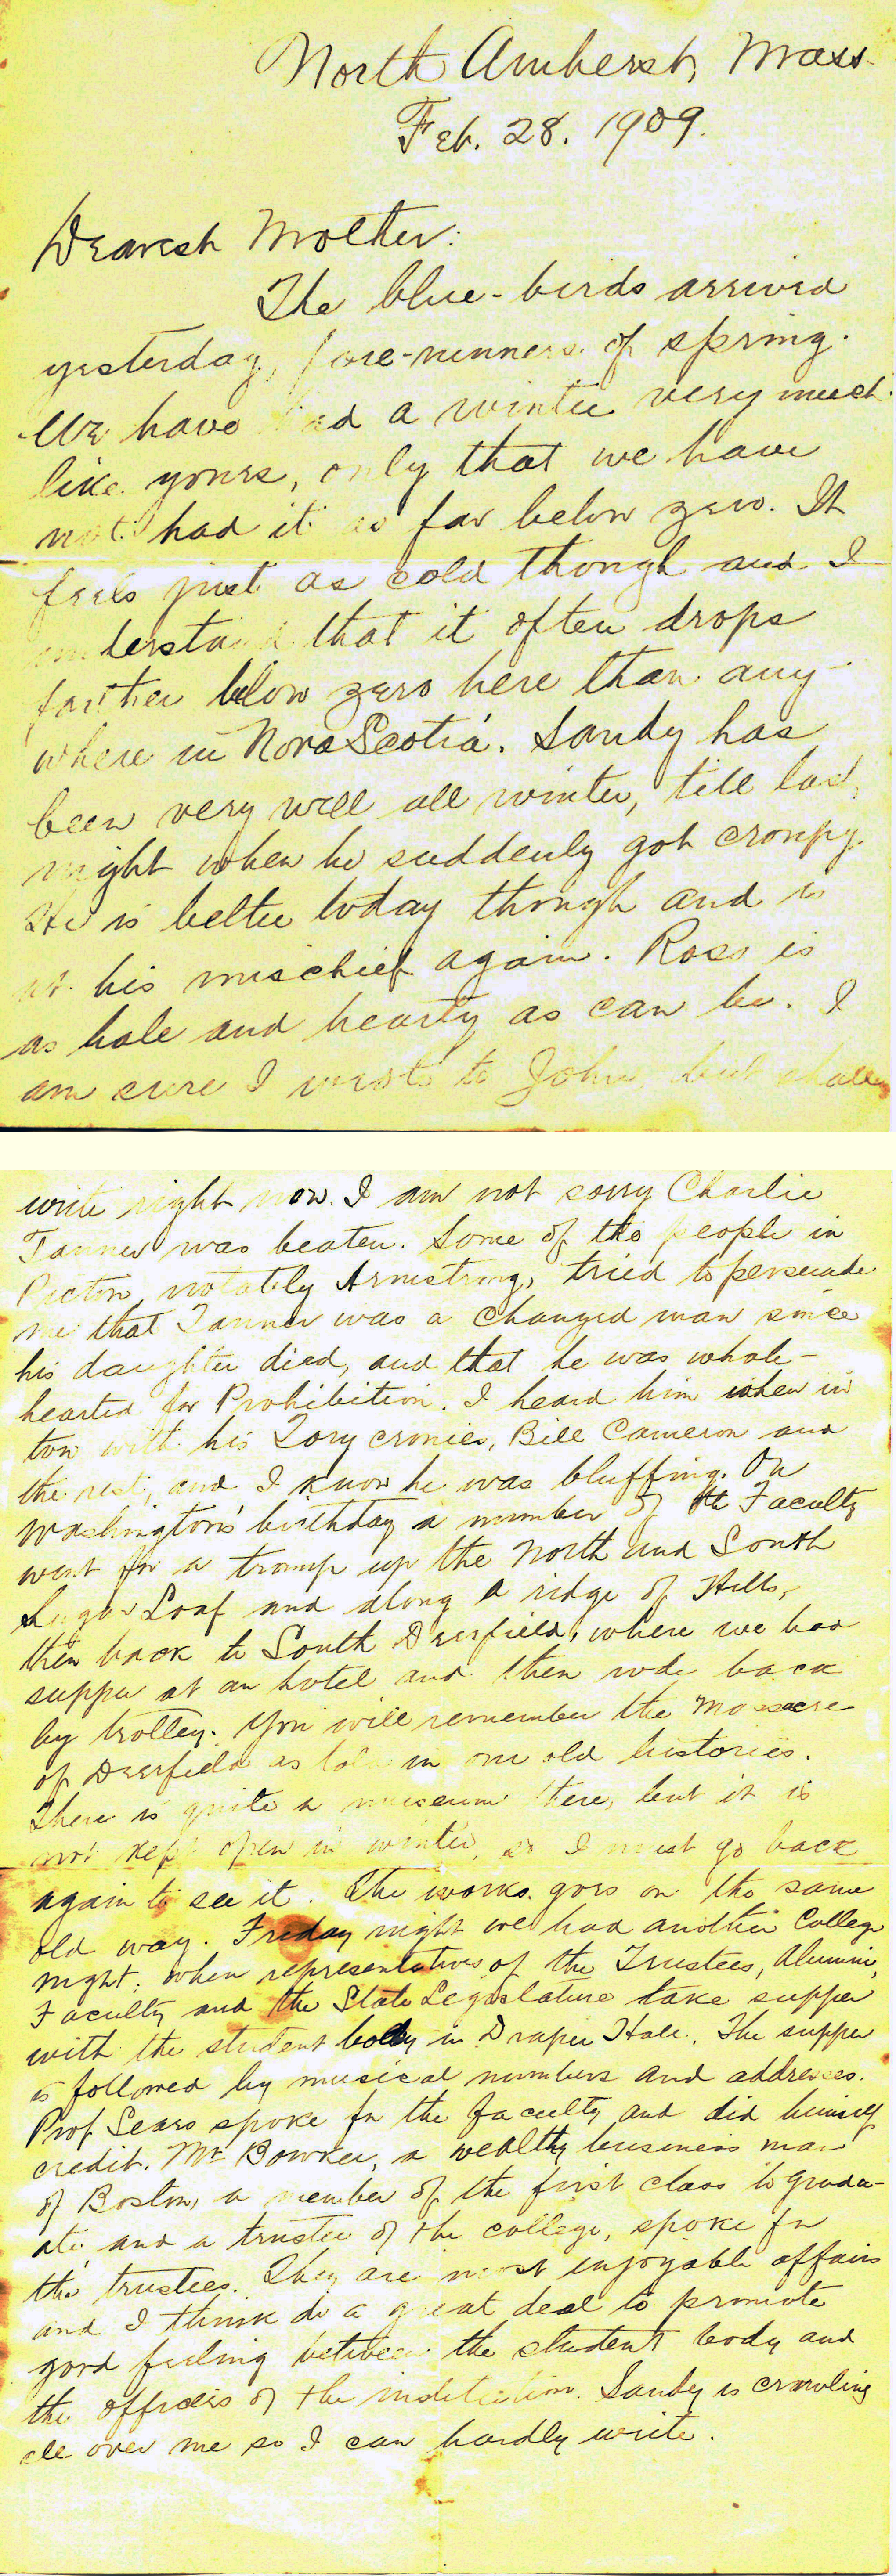 North Amherst, Mass.
Feb. 28. 1909.
Dearest Mother:
The blue-birds arrived
yesterday, fore-runners of spring.
We have had a winter very much
like yours, only that we have
not had it as far below zero. It
feels just as cold though and I
understand that it often drops
farther below zero here than any-
where in Nova Scotia. Sandy has
been very well all winter, till last
night when he suddenly got croupy.
He is better today though and is
at his mischief again. Ross is
as hale and hearty as can be. I
am sure I wrote to John, but shall
write right now. I am not sorry Charlie
Tanner was beaten. Some of the people in
Pictou, notably Armstrong, tried to persuade
me that Tanner was a changed man since
his daughter died, and that he was whole-
hearted for Prohibition. I heard him when in
ton with his Tory cronies, Bill Cameron and
the rest, and I know he was bluffing. On
Washington's birthday a number of the Faculty
went for a tramp up the North and South
Sugar Loaf and along a ridge of Hills,
then back to South Deerfield, where we had
supper at an hotel and then rode back
by trolley. You will remember the Massacre
of Deerfield as told in our old histories.
There is quite a museum there, but it is
not kept open in winter, so I must go back
again to see it. The works goes on the same
old way. Friday night we had another College
night, when representatives of the Trustees, Alumni,
Faculty and the State Legislature take supper
with the student body in Draper Hall. The supper
is followed by musical numbers and addresses.
Prof Sears spoke for the faculty and did himself
credit. Mr Bowker, a wealthy business man
of Boston, a member of the first class to gradu-
ate and a trustee of the college, spoke for
the trustees. They are most enjoyable affairs
and I think do a great deal to promote
good feeling between the student body and
the officers of the institution. Sandy is crawling
all over me so I can hardly write.